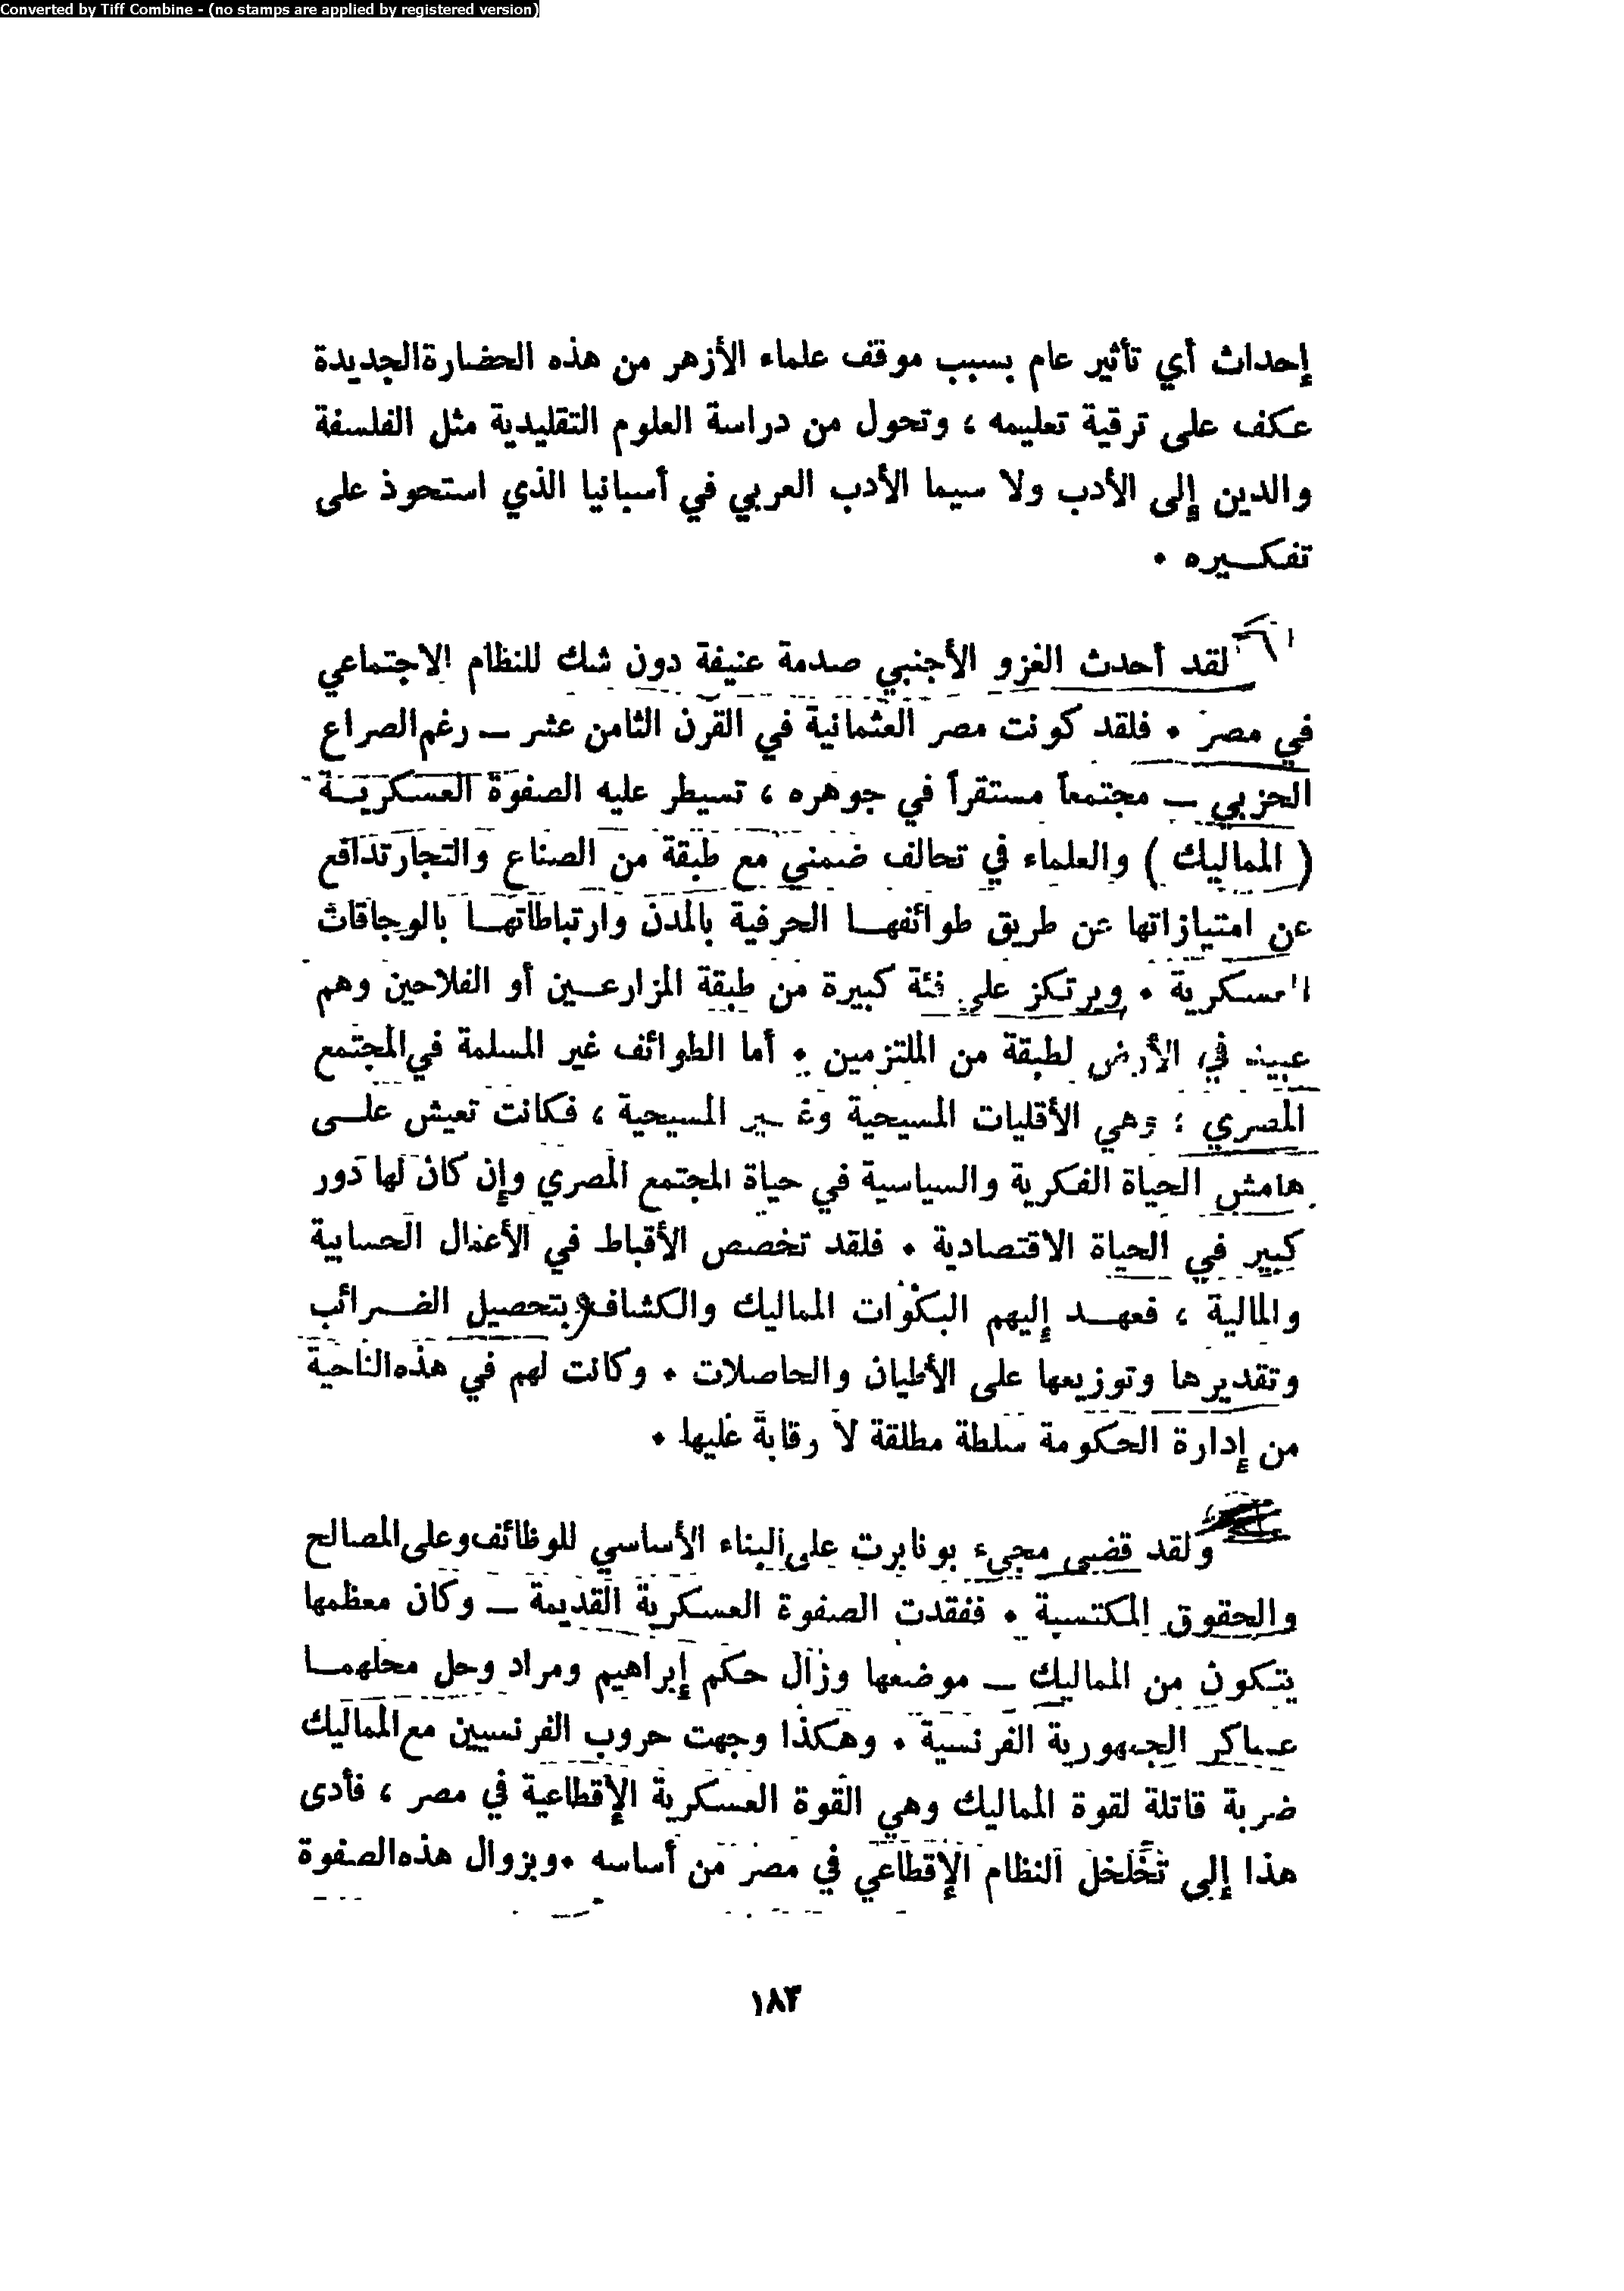 Converted by Tiff Combine - (no stamps are applied by registered version)
إحداث أي تأثير عام بسبب موقف علماء الأزهر من هذه الحضارة الجديدة
عكف على ترقية تعليمه ، وتحول من دراسة العلوم التقليدية مثل الفلسفة
والدين إلى الأدب ولا سيما الأدب العربي في أسبانيا الذي استحوذ على
تفكــيره ٠
لقد أحدث الغزو الأجنبي صدمة عنيفة دون شك للنظام الاجتماعي
في مصر ٠ فلقد كونت مصر العثمانية في القرن الثامن عشر ــ رغم الصراع
الحزبي ــ مجتمعاً مستقراً في جوهره ، تسيطر عليه الصفوة العسكريــة
( المماليك ) والعلماء في تحالف ضمني مع طبقة من الصناع والتجار تدافع
عن امتيازاتها عن طريق طوائفهــا الحرفية بالمدن وارتباطاتهــا بالوجاقات
العسكرية ٠ ويرتكز على فئة كبيرة من طبقة المزارعــين أو الفلاحين وهم
عبيد في الأرض لطبقة من الملتزمين ٠ أما الطوائف غير المسلمة في المجتمع
المصري ؛ وهي الأقليات المسيحية وغــير المسيحية ، فكانت تعيش علــى
هامش الحياة الفكرية والسياسية في حياة المجتمع المصري وإن كان لها دور
كبير في الحياة الاقتصادية ٠ فلقد تخصص الأقباط في الأعمال الحسابية
والمالية ، فعهــد إليهم البكوات المماليك والكشاف بتحصيل الضــرائب
وتقديرها وتوزيعها على الأطيان والحاصلات ٠ وكانت لهم في هذه الناحية
من إدارة الحكومة سلطة مطلقة لا رقابة عليها ٠
ولقد قضى مجيء بونابرت على البناء الأساسي للوظائف وعلى المصالح
والحقوق المكتسبة ٠ ففقدت الصفوة العسكرية القديمة ــ وكان معظمها
يتكون من المماليك ــ موضعها وزال حكم إبراهيم ومراد وحل محلهمــا
عساكر الجمهورية الفرنسية ٠ وهكذا وجهت حروب الفرنسيين مع المماليك
ضربة قاتلة لقوة المماليك وهي القوة العسكرية الإقطاعية في مصر ، فأدى
هذا إلى تخلخل النظام الإقطاعي في مصر من أساسه ٠ وبزوال هذه الصفوة
١٨٣